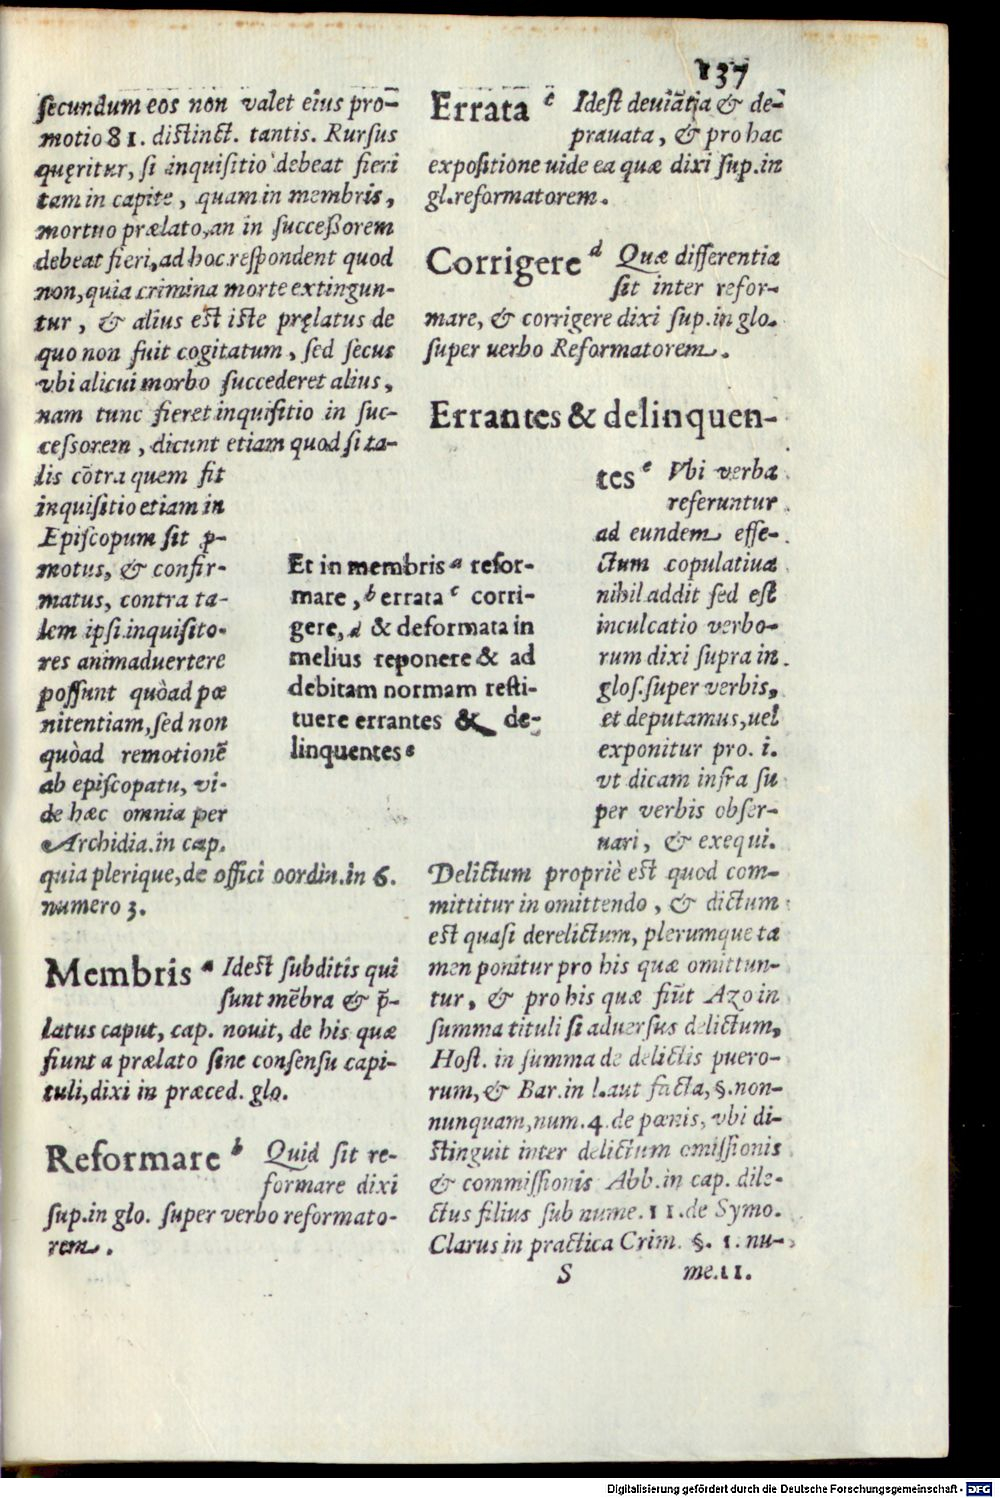 137
secundum eos non valet eius pro-
motio 81. distinct. tantis. Rursus
quęritur, si inquisitio debeat fieri
tam in capite, quam in membris,
mortuo prælato, an in successorem
debeat fieri, ad hoc respondent quod
non, quia crimina morte extingun-
tur, & alius est iste pręlatus de
quo non fuit cogitatum, sed secus
vbi alicui morbo succederet alius,
nam tunc fieret inquisitio in suc-
cessorem, dicunt etiam quod si ta-
lis cõtra quem fit
inquisitio etiam in
Episcopum sit p-
motus, & confir-
matus, contra ta-
lem ipsi inquisito-
res animaduertere
possunt quòad pœ
nitentiam, sed non
quòad remotionẽ
ab episcopatu, vi-
de hæc omnia per
Archidia. in cap.
quia plerique, de offici oordin. in 6.
numero 3.
Membris a Idest subditis qui
sunt mẽbra & p̃-
latus caput, cap. nouit, de his quæ
fiunt a prælato sine consensu capi-
tuli, dixi in præced. glo.
Reformare b Quid sit re-
formare dixi
sup. in glo. super verbo reformato-
rem.
Et in membris a refor-
mare, b errata c corri-
gere, d & deformata in
melius reponere & ad
debitam normam resti-
tuere errantes & de-
linquentes e
Errata c Idest deuiãtia & de-
prauata, & pro hac
expositione uide ea quæ dixi sup. in
gl. reformatorem.
Corrigere d Quæ differentia
sit inter refor-
mare, & corrigere dixi sup. in glo.
super uerbo Reformatorem.
Errantes & delinquen-
tes e Vbi verba
referuntur
ad eundem effe-
ctum copulatiua
nihil addit sed est
inculcatio verbo-
rum dixi supra in
glos. super verbis,
et deputamus, uel
exponitur pro. i.
vt dicam infra su
per verbis obser-
uari, & exequi.
Delictum propriè est quod com-
mittitur in omittendo, & dictum
est quasi derelictum, plerumque ta
men ponitur pro his quæ omittun-
tur, & pro his quæ fiũt Azo in
summa tituli si aduersus delictum,
Host. in summa de delictis puero-
rum, & Bar. in l. aut facta, §. non-
nunquam, num. 4. de pœnis, vbi di-
stinguit inter delictum omissionis
& commissionis Abb. in cap. dile-
ctus filius sub nume. 11. de Symo.
Clarus in practica Crim. §. 1. nu-
S me. 11.
Digitalisierung gefördert durch die Deutsche Forschungsgemeinschaft - DFG